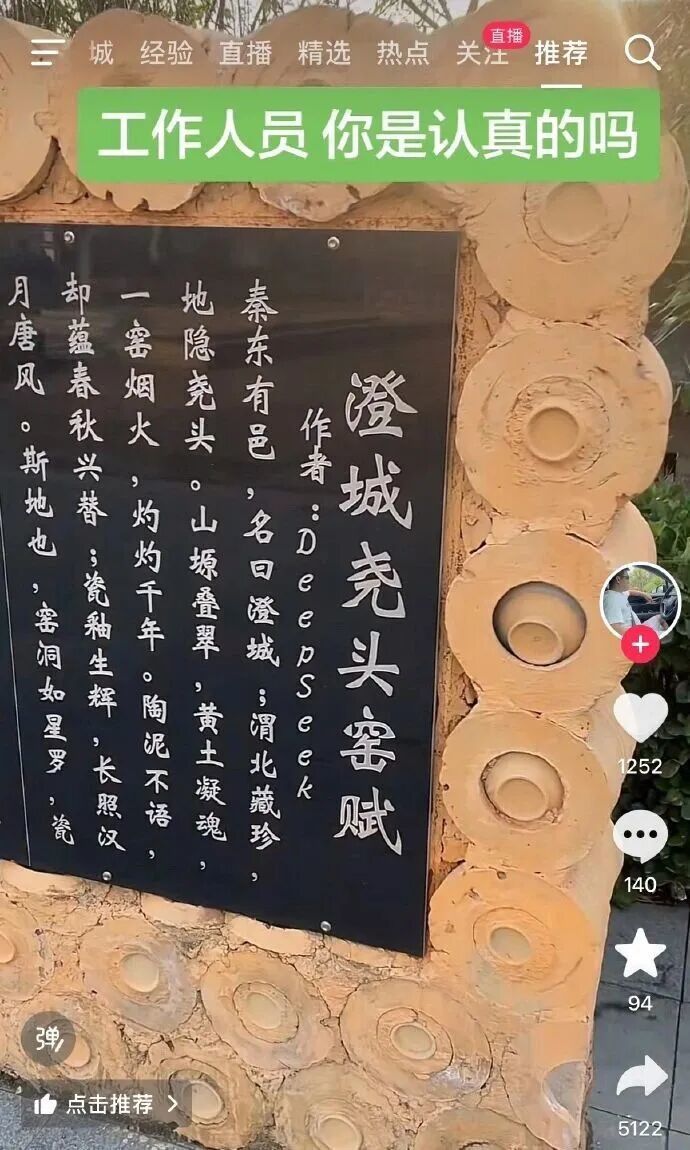 城 经验 直播 精选 热点 关注 直播 推荐
工作人员 你是认真的吗
澄城尧头窑赋
作者：DeepSeek
秦东有邑，名曰澄城；渭北藏珍，
地隐尧头。山塬叠翠，黄土凝魂，
一窑烟火，灼灼千年。陶泥不语，
却蕴春秋兴替；瓷釉生辉，长照汉
月唐风。斯地也，窑洞如星罗，瓷
1252
140
94
5122
弹
点击推荐